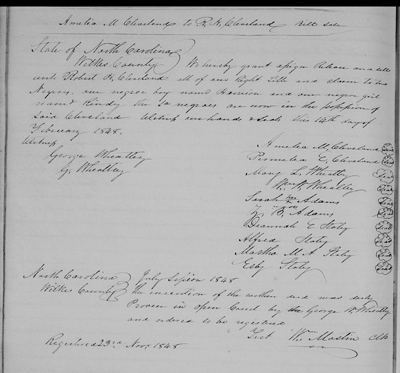 Amelia M Cleveland to R. H. Cleveland Bill sale
State of North Carolina
Wilkes County We hereby grant assign Release and
unto Robert H Cleveland all of our Right Title and claim to two
Negroes, one negroe boy named Harrison and one negroe girl
named Kindy the sd negroes are now in the possession of
Said Cleveland Witness our hands & Seals this 14th day of
February 1848.
Witness
George Wheatley
G. Wheatley
Amelia M. Cleveland
Permelia C. Cleveland
Mary L. Wheatly
Wm W Wheatley
Sarah Adams
Adams
Hannah C Staly
Alfred Staly
Martha M. A Staly
Esby Staly
North Carolina July Session 1848
Wilkes County The execution of the within deed was duly
Proven in open Court by the George W Wheatly
and ordered to be registered
Test Wm Mastin Clk
Registered 23rd Novr 1848